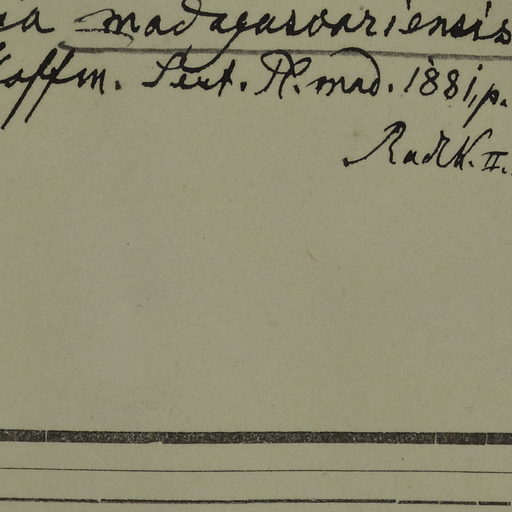 ia madagascariensis
Hoffm. Sert. Pl. mad. 1881, p.
Radlk. II.